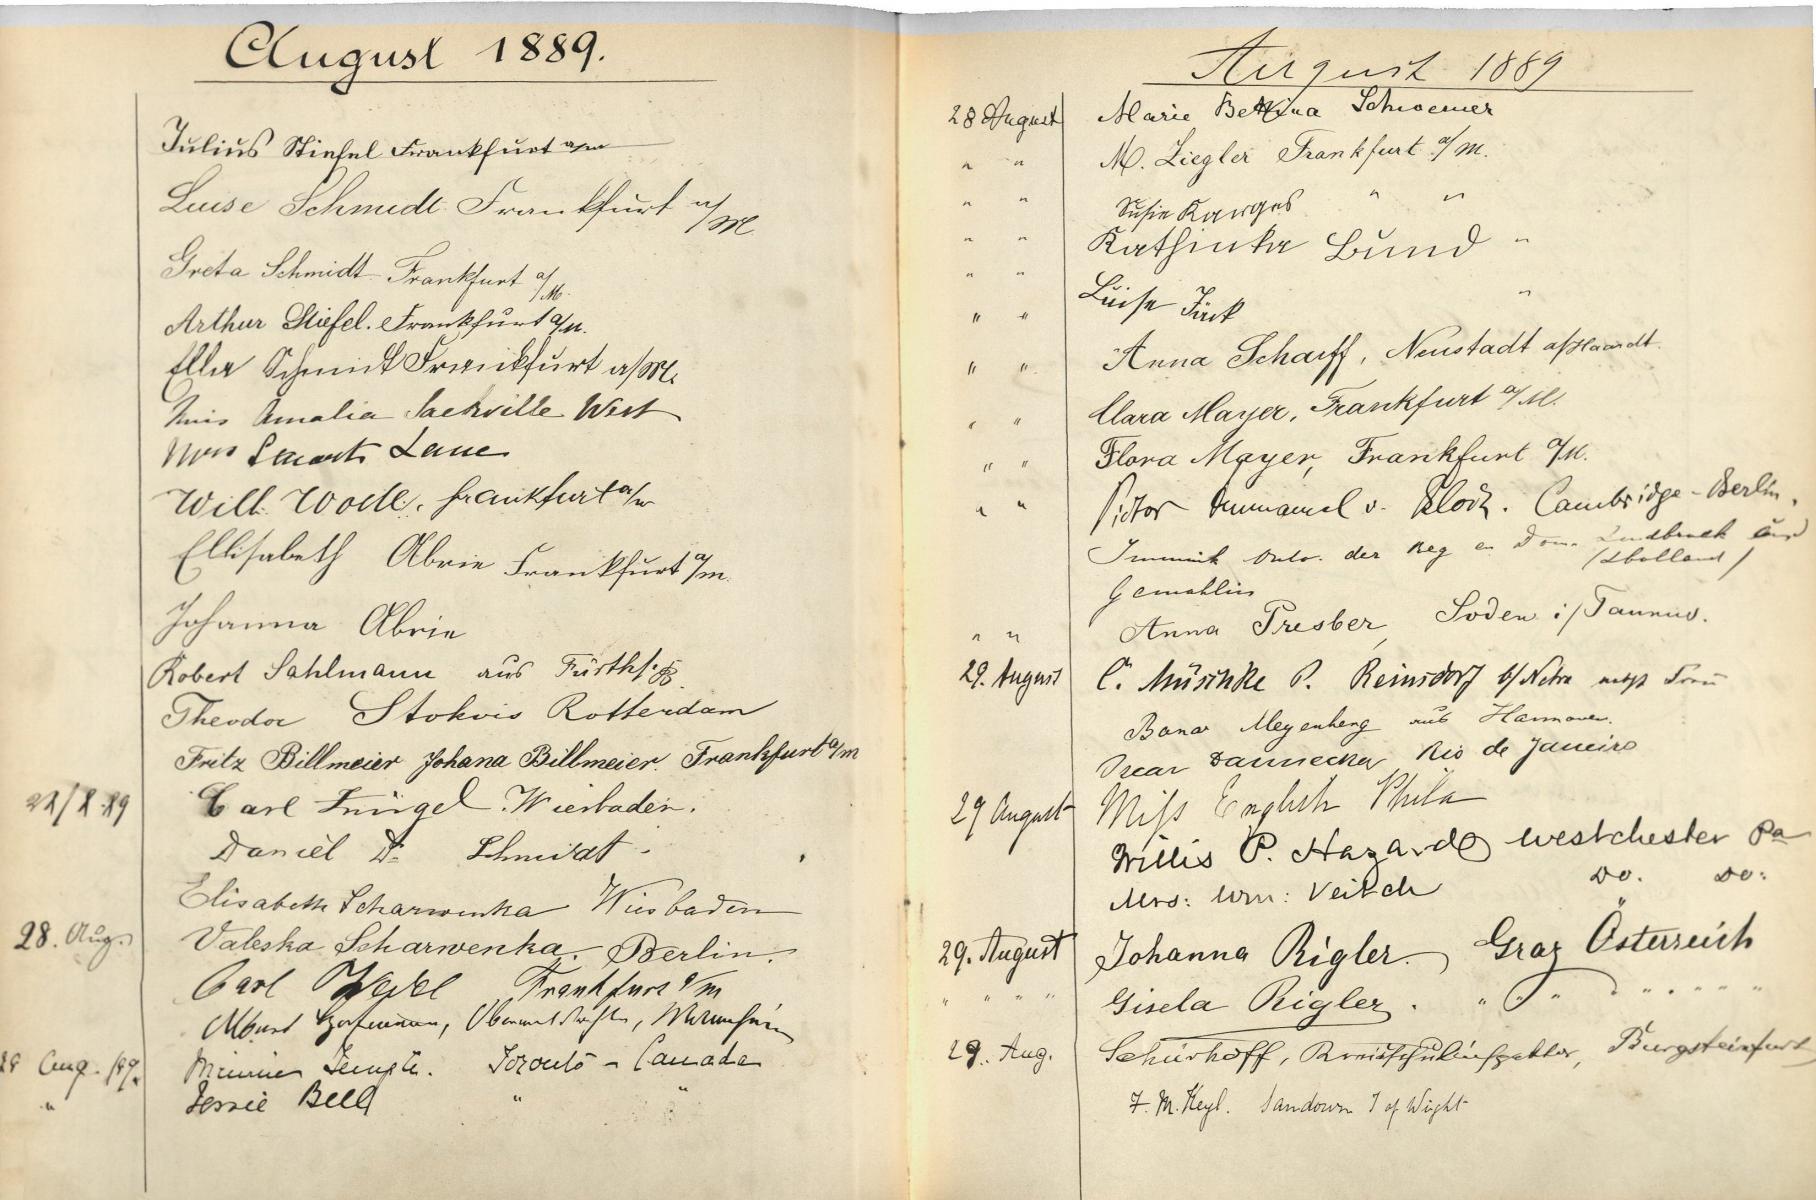 August 1889.
Julius Stiefel Frankfurt a/m
Luise Schmidt Frankfurt a/M
Greta Schmidt Frankfurt a/M.
Arthur Stiefel. Frankfurt a/M.
Ella Schmidt Frankfurt a/M.
Miss Amalia Sackville West
Mrs Lane
Will. Woell. Frankfurt a/m
Ellisabeth Abrie Frankfurt a/m.
Johanna Abrie
Robert Sahlmann aus Fürth
Theodor Stokvis Rotterdam
Fritz Billmeier Johana Billmeier. Frankfurt a/m
Carl Wiesbaden.
Daniel D. Schmidt
Elisabeth Scharwenka Wiesbaden
28. Aug. Valeska Scharwenka. Berlin.
Carl Frankfurt a/m
Albert
Aug. Minnie Temple. Toronto - Canada
" Jessie Bell " "
August 1889
28 August Marie Bettina Schroemer
" " M. Ziegler Frankfurt a/M.
" " Susie Karges " "
" " Kathinka Bund "
" " Luise Jück "
" " Anna Scharff, Neustadt a/Haardt.
" " Clara Mayer, Frankfurt a/M.
" " Flora Mayer, Frankfurt a/M.
" " Victor Emmanuel v. Cambridge - Berlin.
der Reg
Gemahlin
" " Anna Presber, Soden i/Taunus.
29. August C. Müschke P. Reinsdorf b/Nebra nebst Frau
Meyenberg aus Hannover.
Oscar Dannecker Rio de Janeiro
29 August Miss English Phila
Willis P. Hazard Westchester Pa
Mrs: Wm: Veitch Do. Do:
29. August Johanna Rigler. Graz Österreich
" " " " Gisela Rigler. " " " " " " "
29. Aug. Schürhoff, Kreisschulinspektor, Burgsteinfurt
F. M. Keyl. Sandown I of Wight